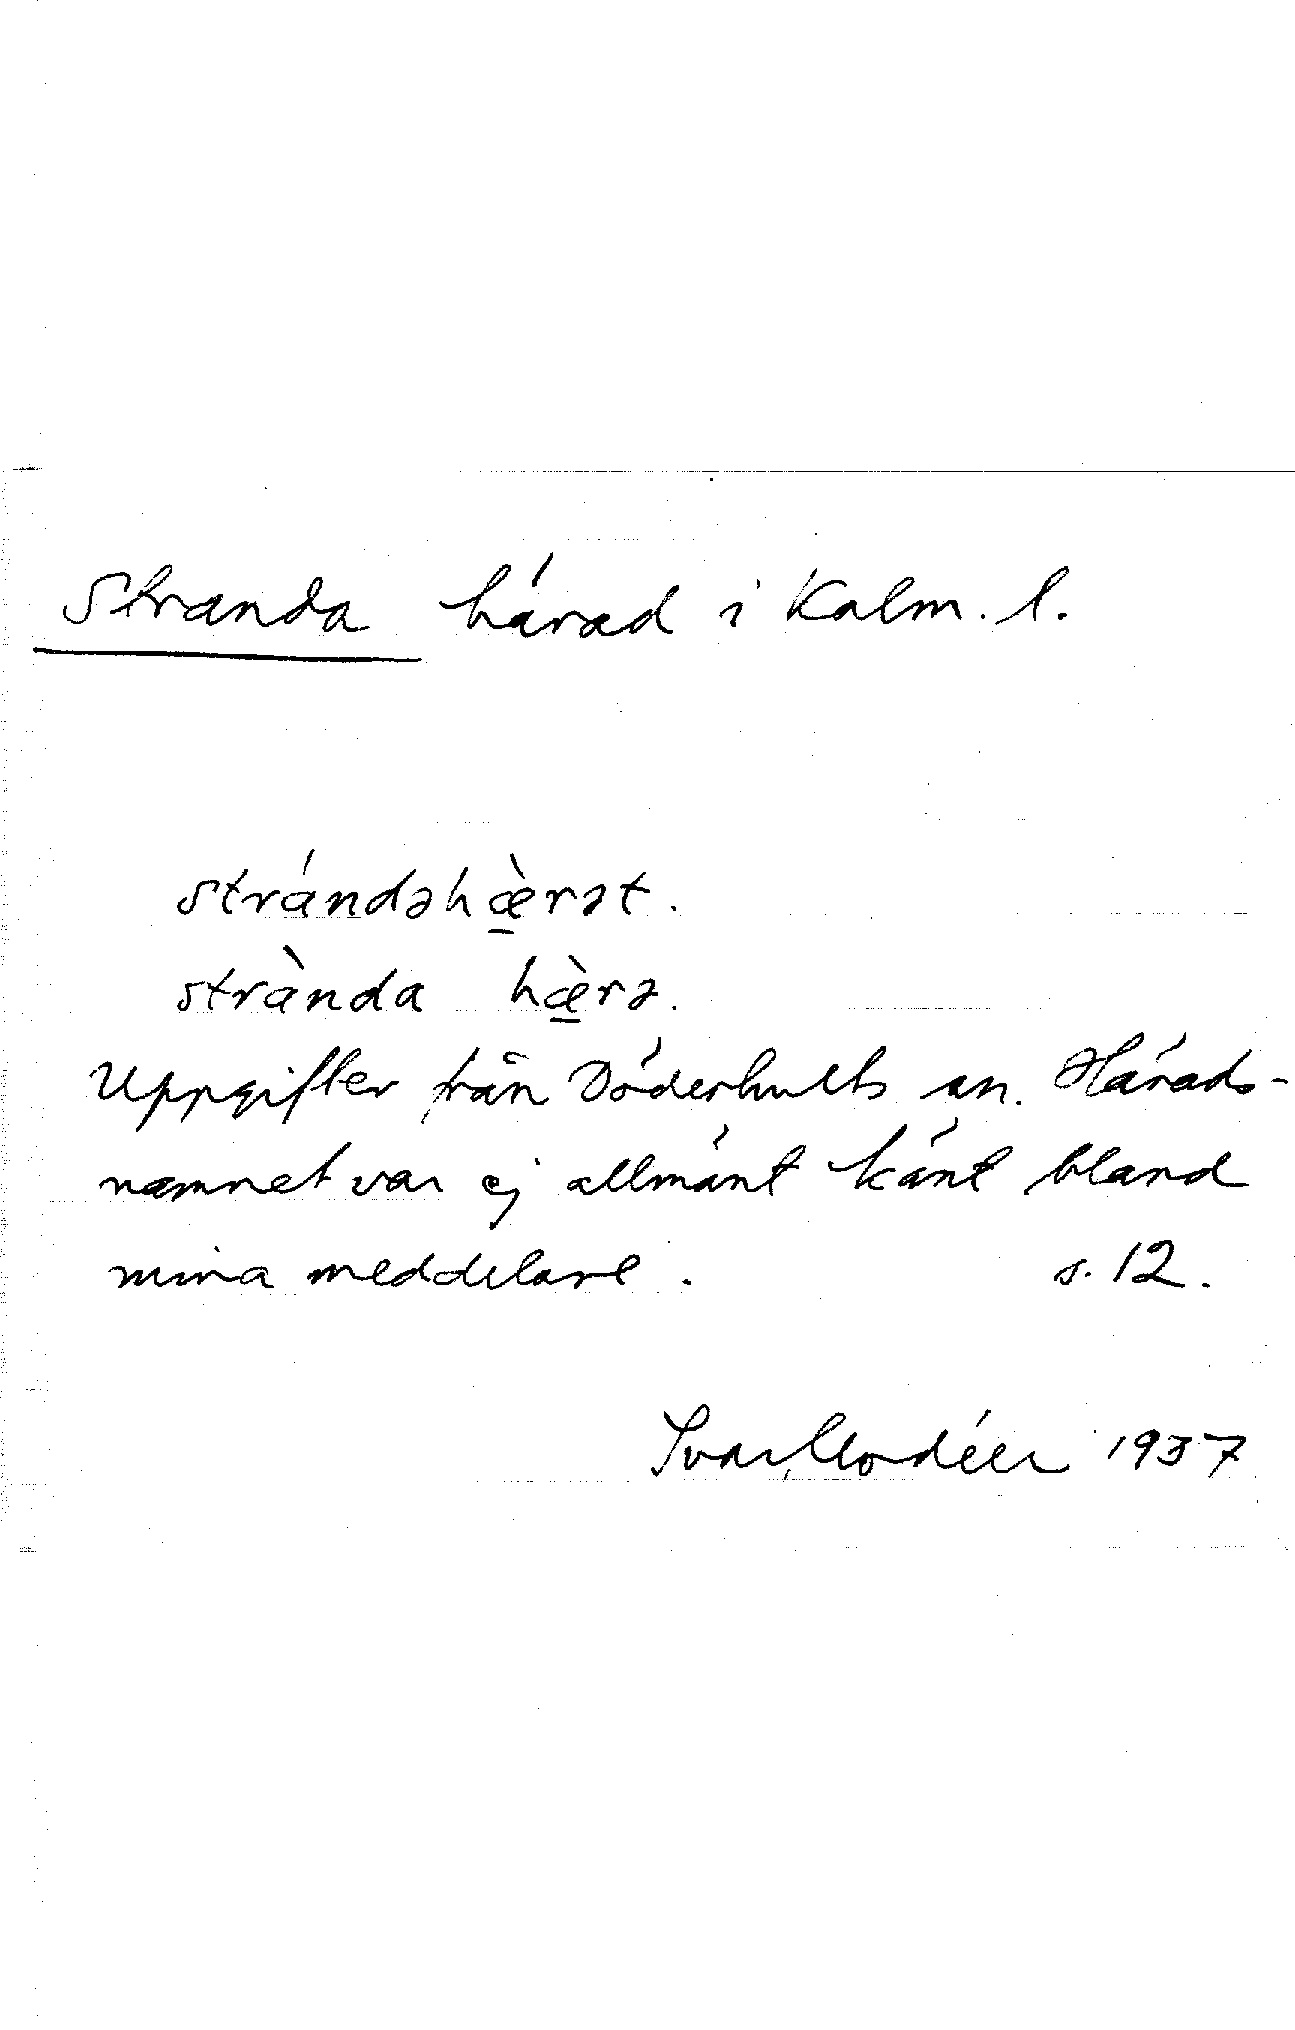 Stranda härad i Kalm. l.
strándəhæ̱̀rət.
strànda hæ̱̀rə.
Uppgifter från Döderhults sn. Härads-
namnet var ej allmänt känt bland
mina meddelare. s. 12.
Ivar Modéer 1937